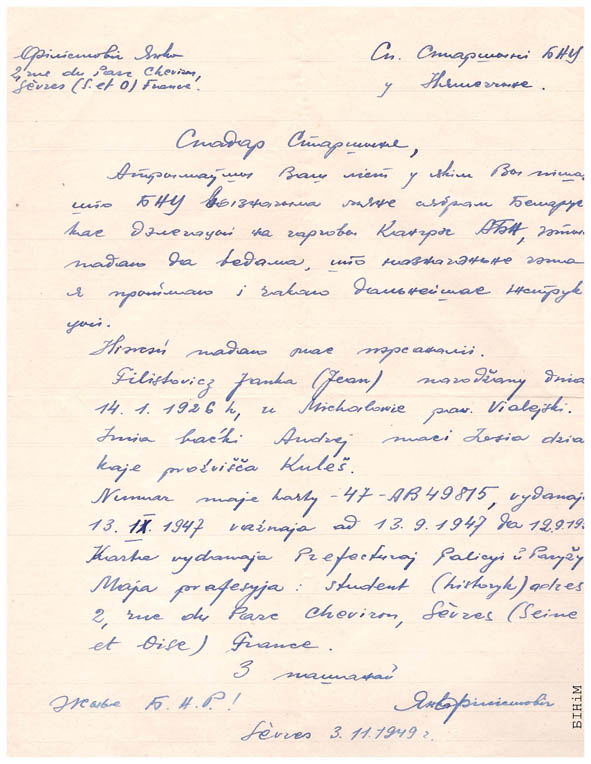 Філістовіч Янко
2, rue du Parc Cheviron,
Sèvres (S. et O) France.
Сп. Старшыні БНЦ
у Нямеччыне.
Спадар Старшыня,
Атрымаўшы Ваш ліст у якім Вы піша
што БНЦ вызначыла мяне сябрам Беларус
кае дэлегацыі на чарговы Кангрэс АБН, гэтым
падаю да ведама, што назначэньне гэта
я прыймаю і чакаю дальнейшае інструк
цыі.
Ніжэй падаю мае пэрсаналіі.
Filistovicz Janka (Jean) narodžany dnia
14. 1. 1926 h, u Michałowie paw. Vialejski.
Imia baćki Andrej maci Zosia dzia
kaje prožvišča Kuleš.
Numar maje karty - 47 - AB 49815, vydanaj
13. IX. 1947 važnaja ad 13. 9. 1947 da 12.9.19
Karta vydanaja Prefecturaj Policyi ŭ Paryžy
Maja prafesyja: student (historyk) adres
2, rue du Parc Cheviron, Sèvres (Seine
et Oise) France.
З пашанай
Жыве Б.Н.Р.!
Янка Філістовіч
Sèvres 3. 11. 1949 г.
БІНіМ